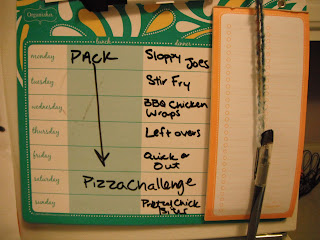 Organisher
lunch dinner
monday PACK Sloppy Joes
tuesday Stir Fry
wednesday BBQ Chicken Wraps
thursday Leftovers
friday Quick & Out
saturday Pizza Challenge
sunday Pretzel Chick Bites